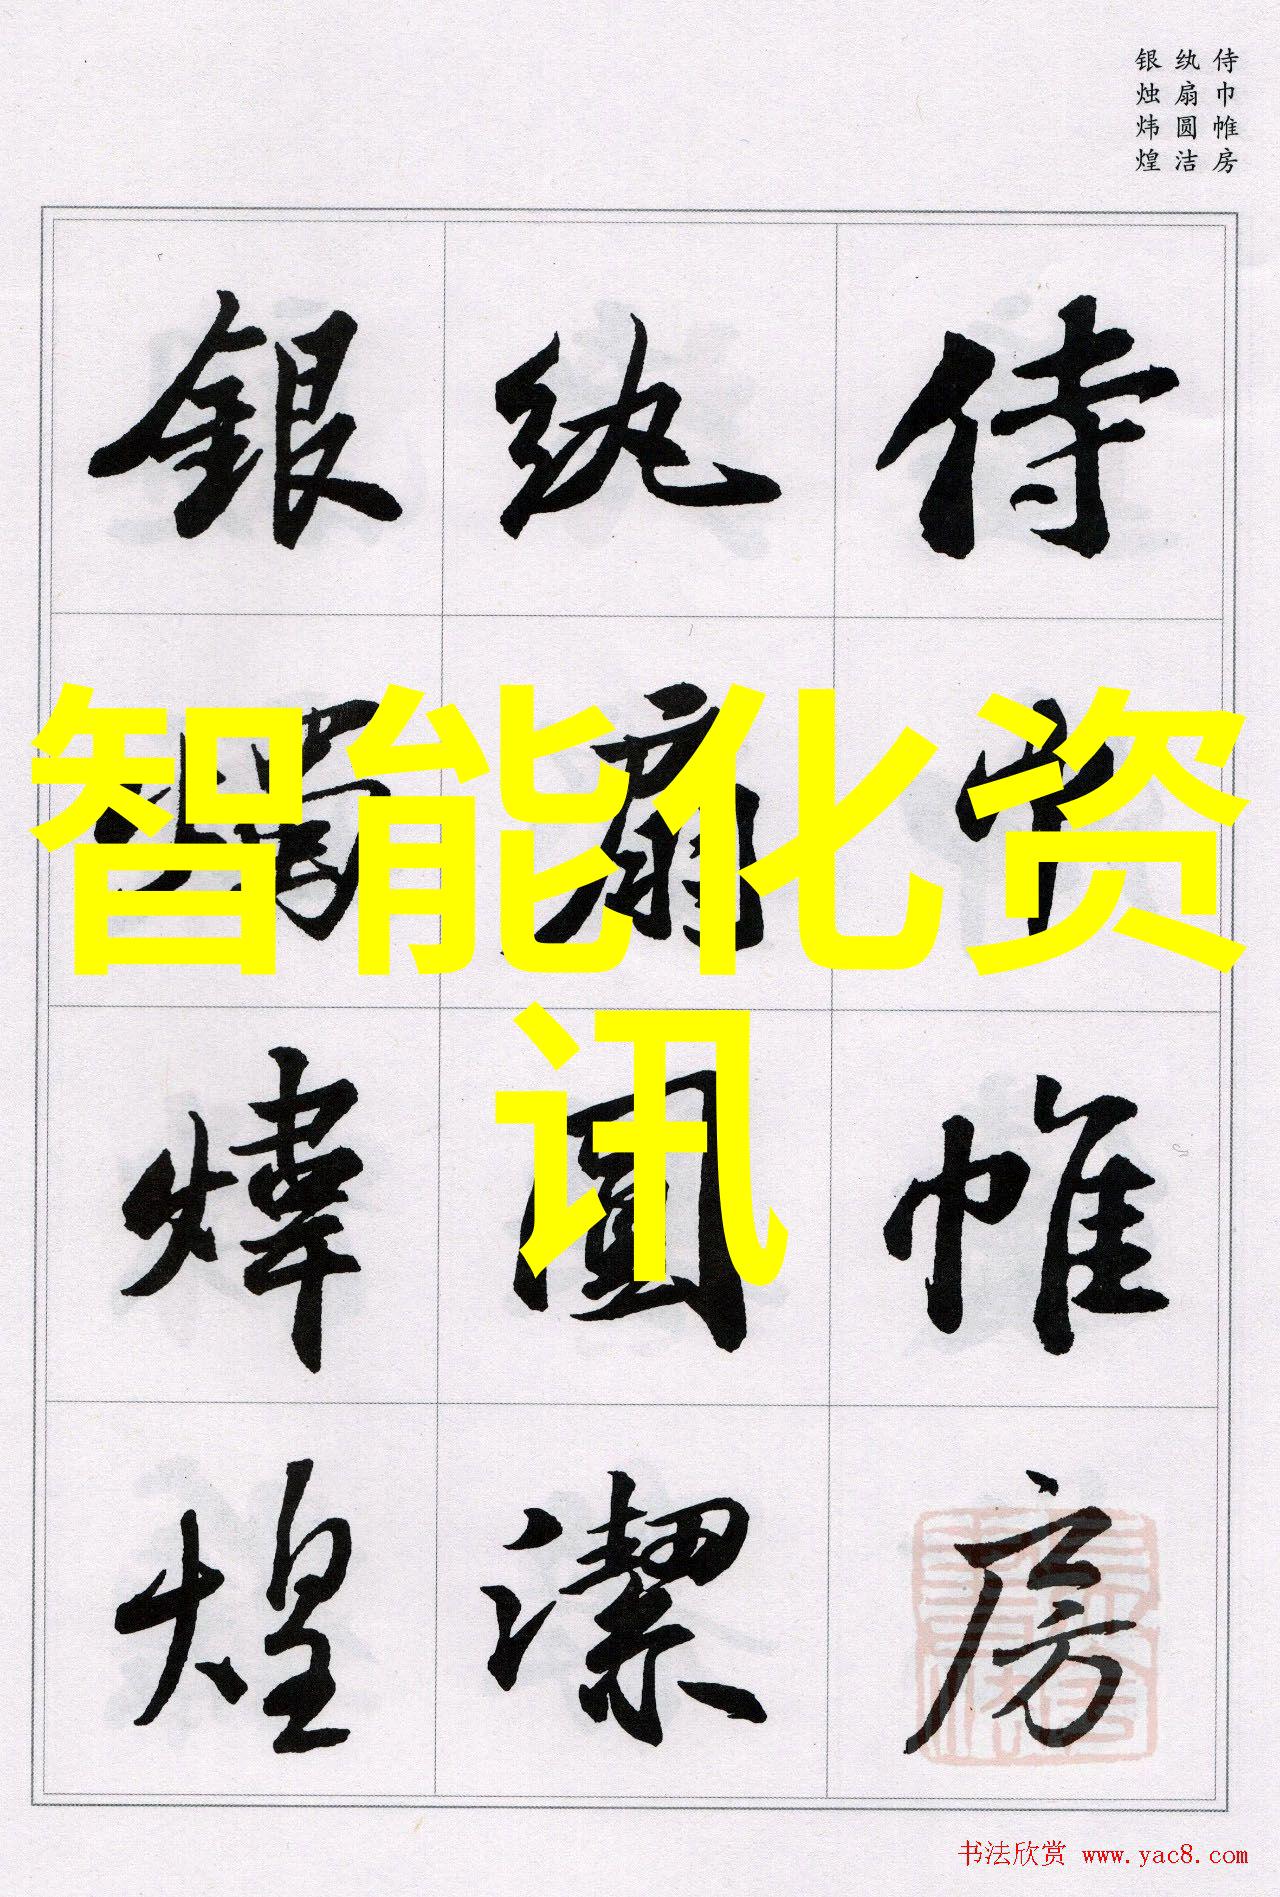 侍巾帷房
纨扇圆洁
银烛炜煌
侍巾帷房
紈扇圓潔
銀燭煒煌
智能化资
讯
书法欣赏 www.yac8.com